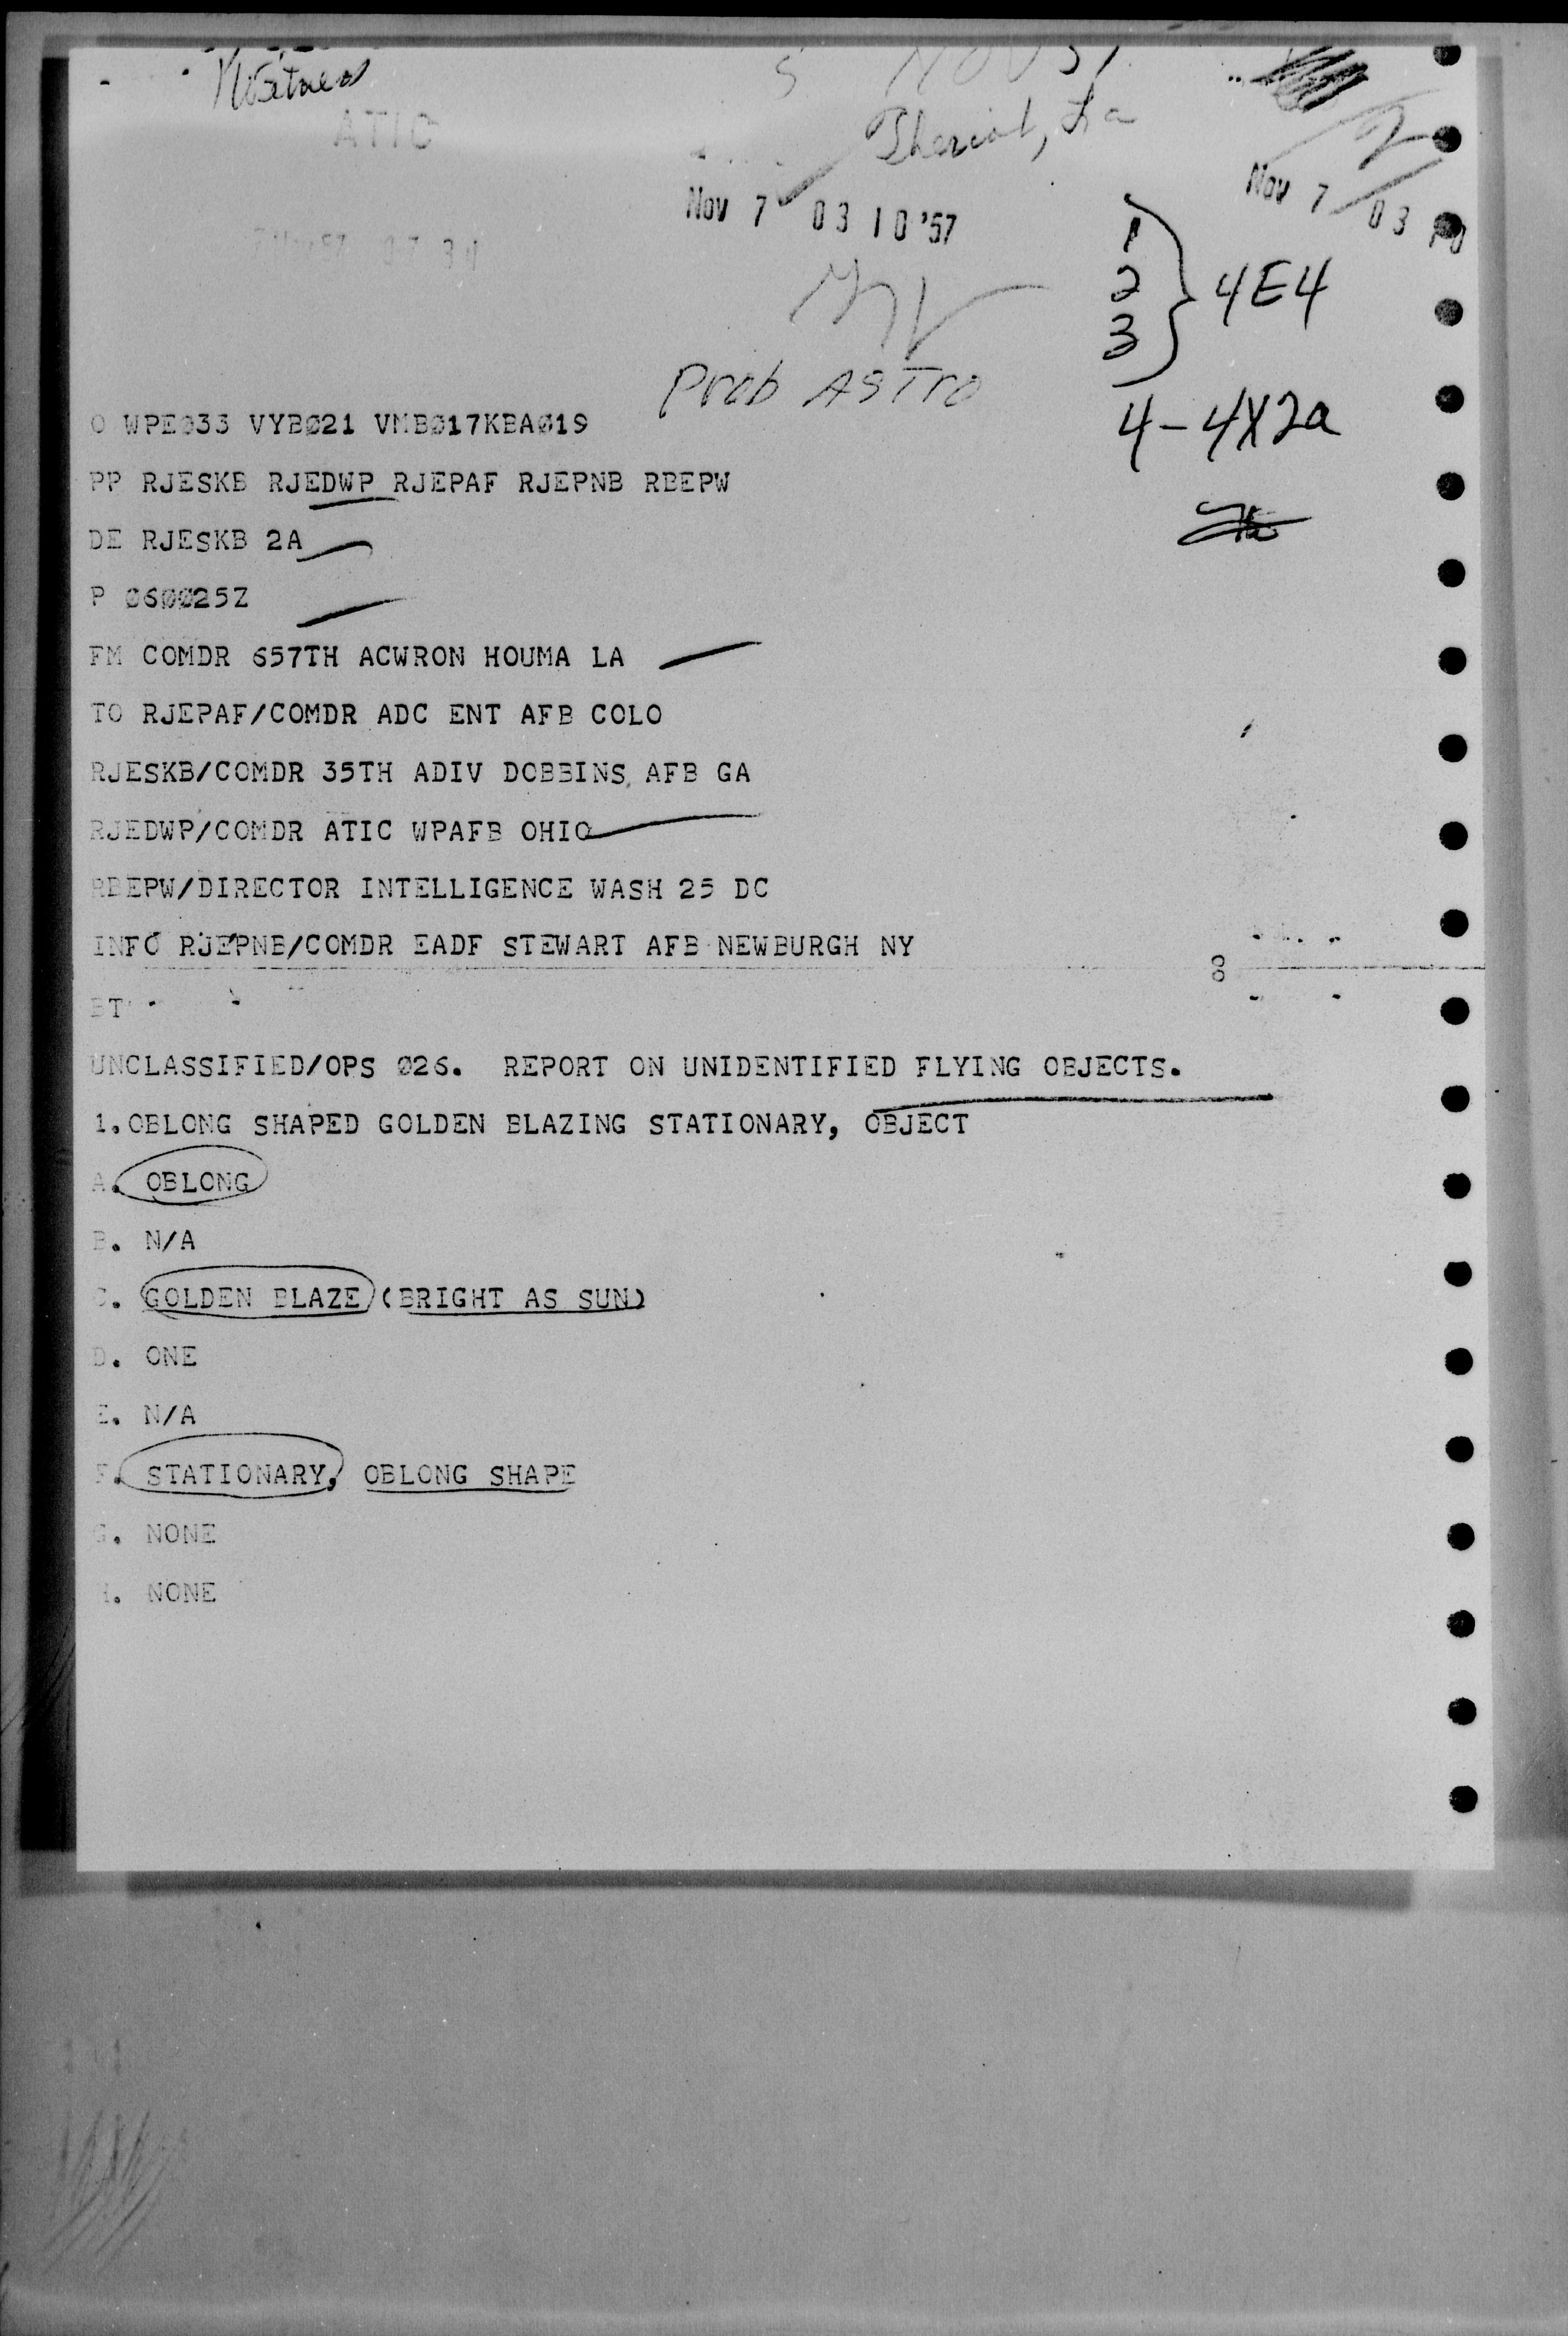 Witness
5 Nov 57
ATIC
Theriot, La
Nov 7 03 10 '57
Nov 7 03 10
1
2
3
4E4
Prob ASTro
4-4X2a
O WPE033 VYBØ21 VMBØ17KBAØ19
PP RJESKB RJEDWP RJEPAF RJEPNB RBEPW
DE RJESKB 2A
P Ø6ØØ25Z
FM COMDR 657TH ACWRON HOUMA LA
TO RJEPAF/COMDR ADC ENT AFB COLO
RJESKB/COMDR 35TH ADIV DOBBINS AFB GA
RJEDWP/COMDR ATIC WPAFB OHIO
RBEPW/DIRECTOR INTELLIGENCE WASH 25 DC
INFO RJEPNB/COMDR EADF STEWART AFB NEWBURGH NY
BT
UNCLASSIFIED/OPS Ø26. REPORT ON UNIDENTIFIED FLYING OBJECTS.
1.OBLONG SHAPED GOLDEN BLAZING STATIONARY, OBJECT
A. OBLONG
B. N/A
C. GOLDEN BLAZE (BRIGHT AS SUN)
D. ONE
E. N/A
F. STATIONARY, OBLONG SHAPE
G. NONE
H. NONE